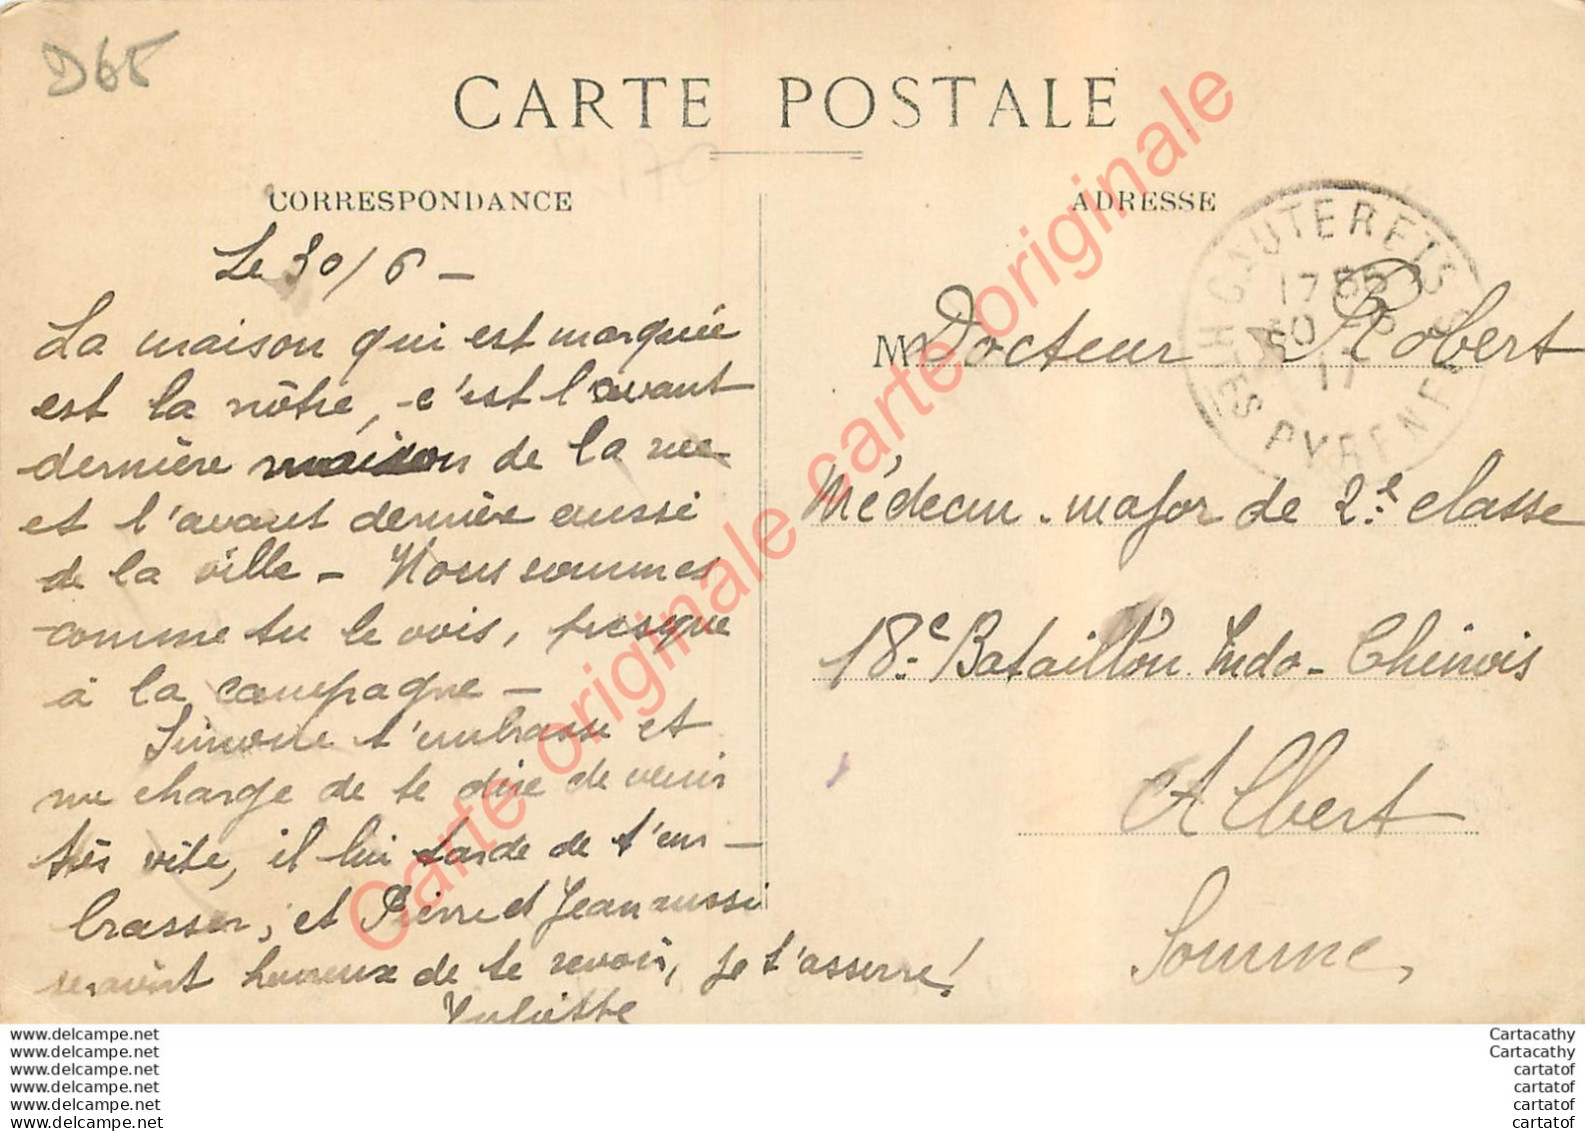 D65
CARTE POSTALE
CORRESPONDANCE
Le 30/6 –
La maison qui est marquée
est la nôtre, c'est l'avant
dernière maison de la rue
et l'avant dernière aussi
de la ville – Nous sommes
comme tu le vois, presque
à la campagne –
Simone t'embrasse et
me charge de te dire de venir
très vite, il lui tarde de t'em–
brasser, et Pierre et Jean aussi
seraient heureux de te revoir, je t'assure!
Juliette
ADRESSE
CAUTERETS
17
30
17
HTES PYRENEES
M Docteur Robert
Médecin-major de 2e classe
18e Bataillon Indo-Chinois
Albert
Somme
Carte originale carte originale carte originale
www.delcampe.net
www.delcampe.net
www.delcampe.net
www.delcampe.net
www.delcampe.net
www.delcampe.net
Cartacathy
Cartacathy
cartatof
cartatof
cartatof
cartatof